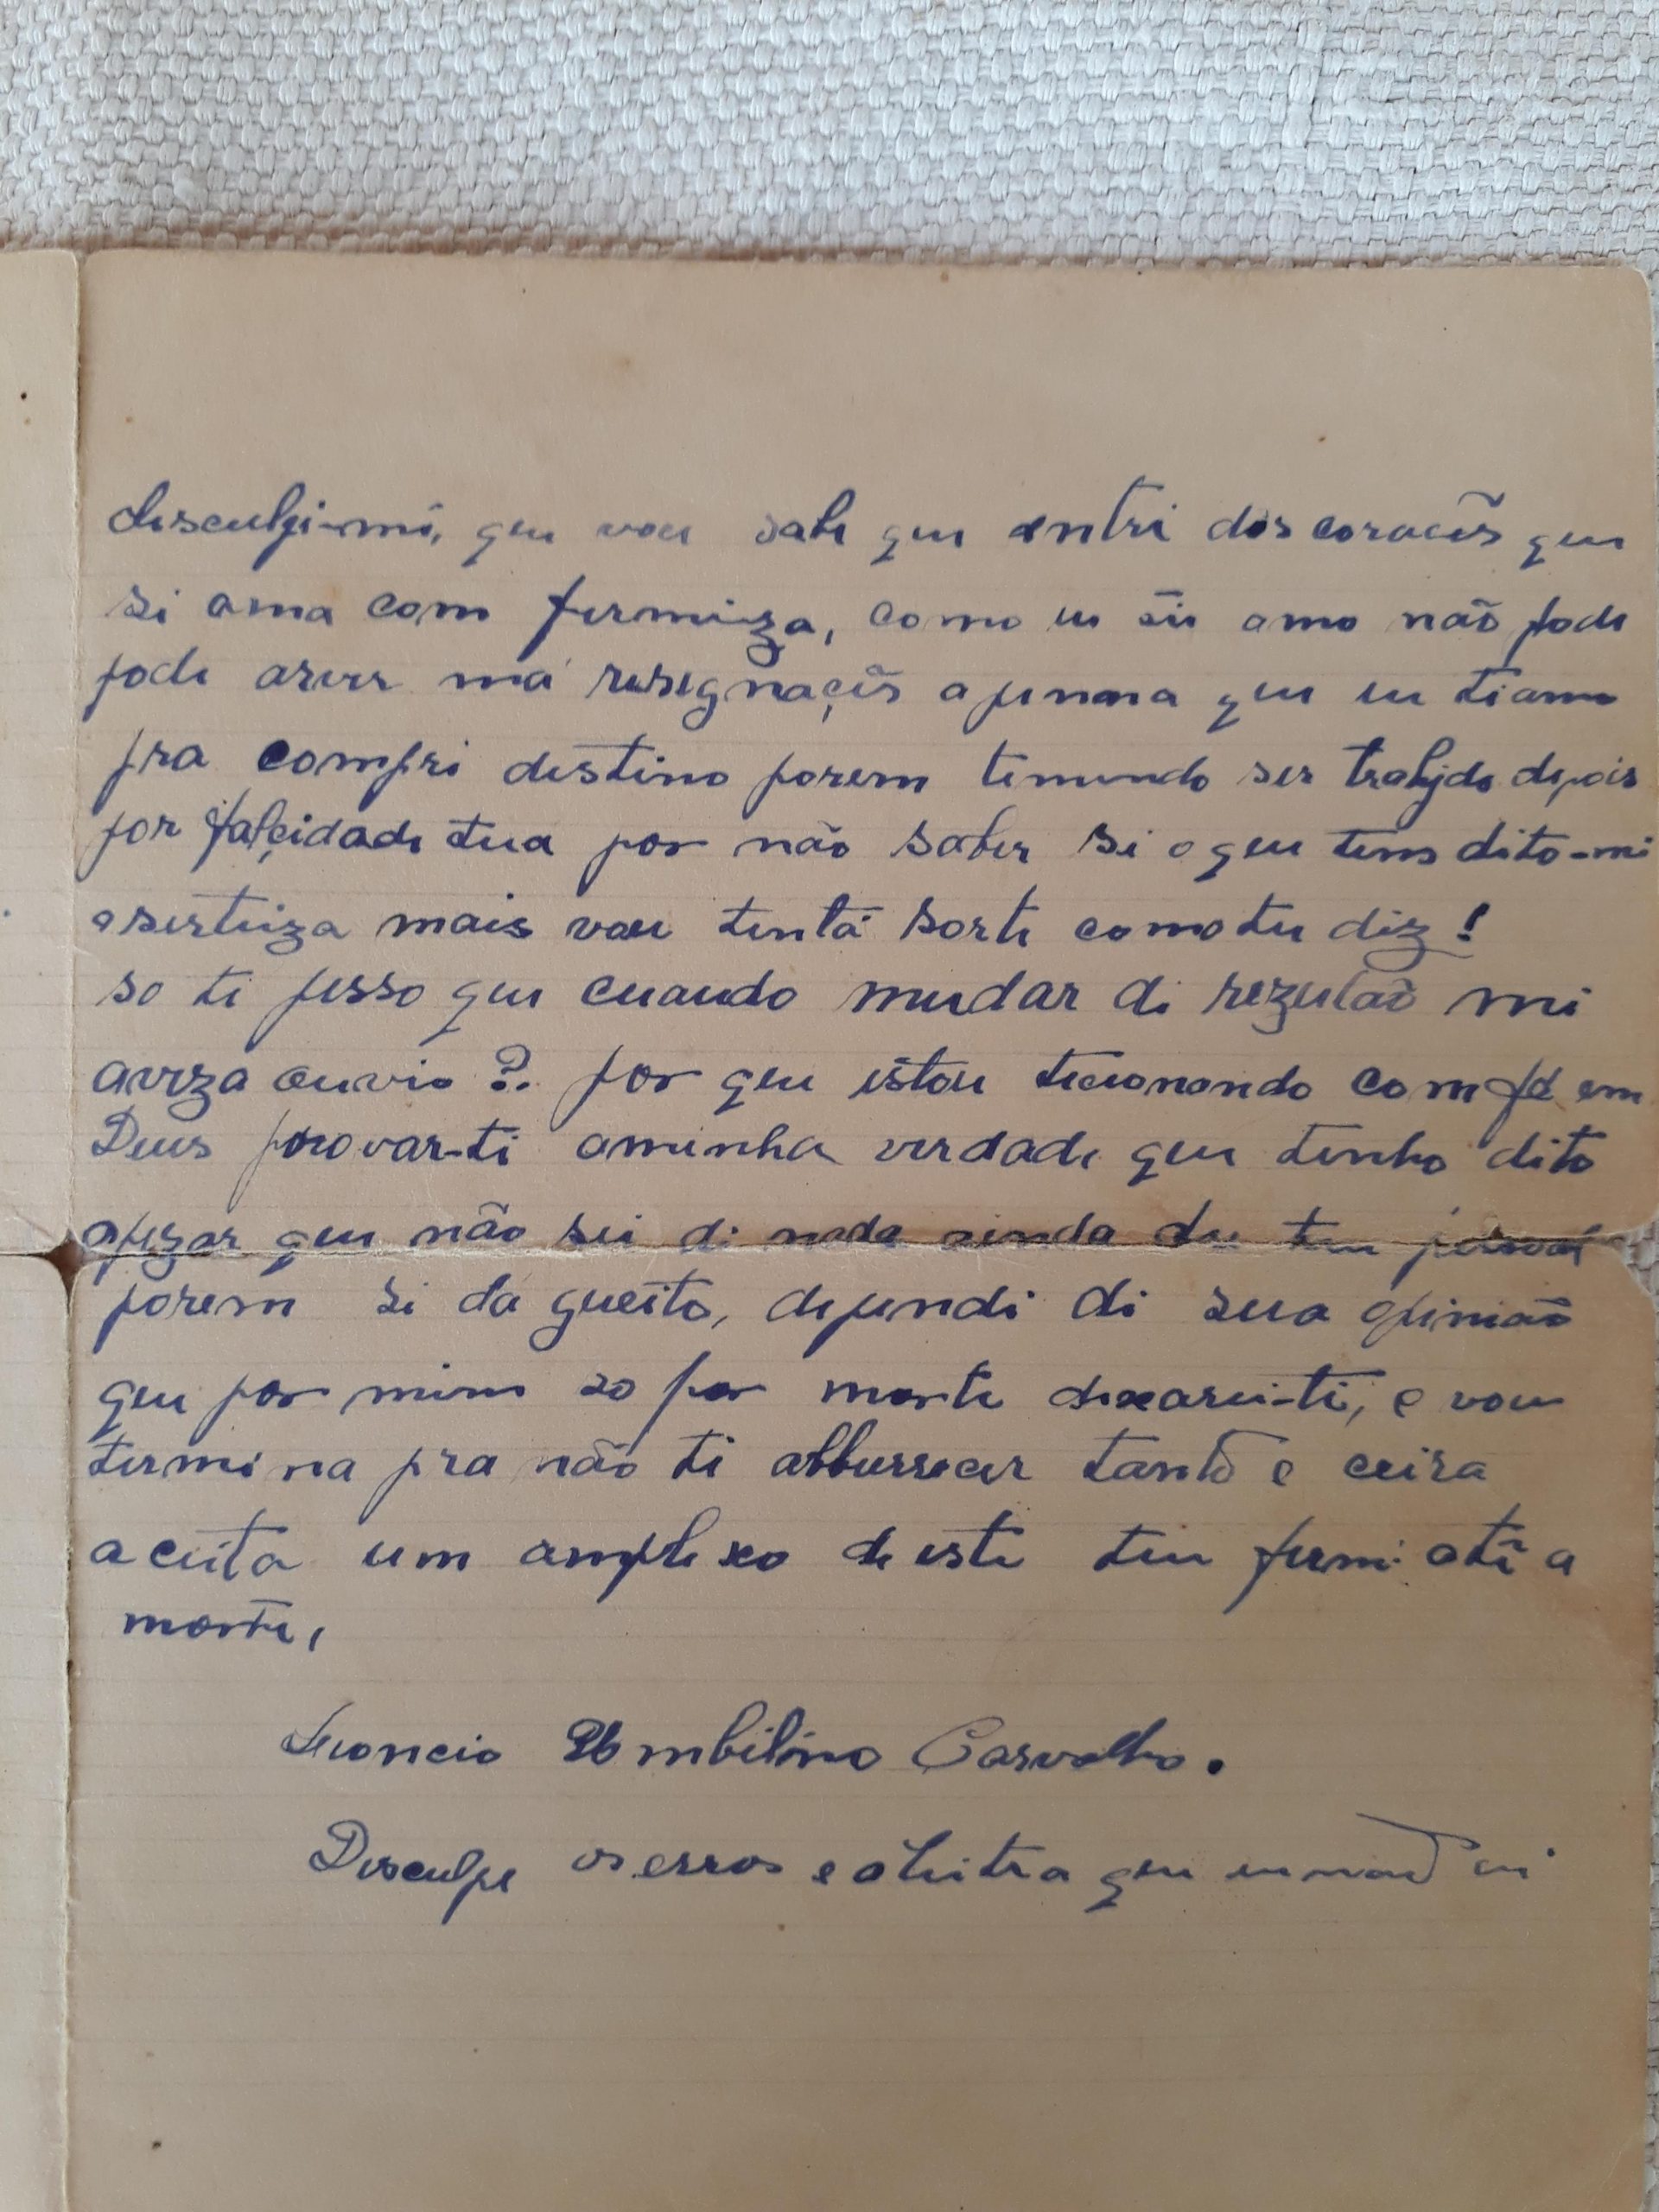 desculpi-mi, que voce sabe que entri dos coracões que
si ama com fermeza, como eu sei amo não pode
pode aver má resegnaçõs apenna que eu ti amo
pra compri destino porem temendo ser trahjdo depois
por falçidade tua por não saber si o que tens dito-mi
e serteiza mais vou tentá sorte como tu diz!
so ti pesso que cuando mudar di rezulaõ mi
aviza ouvio? por que estou tecionando com fé em
Deus provar-ti aminha verdade que tenho dito
apezar que não sei di nada ainda de teu
porem si da gueito, dependi di sua opinião
que por mim so por morte dexarei-ti, e vou
termina pra não ti abburrecer tanto e ceira
aceita um amplexo de este teu fermi até a
morte,
Leoncio Umbilino Carvalho.
Desculpe os erros e a leitra que eu não